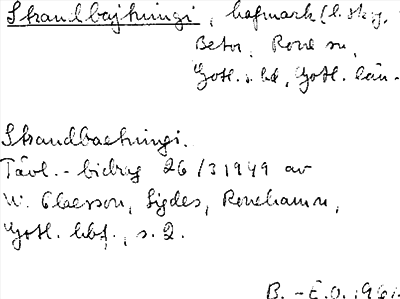 Strandbajkningi, hafmark (b. sky.
Betw. Rone sn,
Gotl. s. hd, Gotl. län.
Strandbackningi.
Tävl.-bidrag 26/3 1949 av
W. Claesson, Sigdes, Ronehamn,
Gotl. hbf., s. 2.
B.-E.O. 1961.